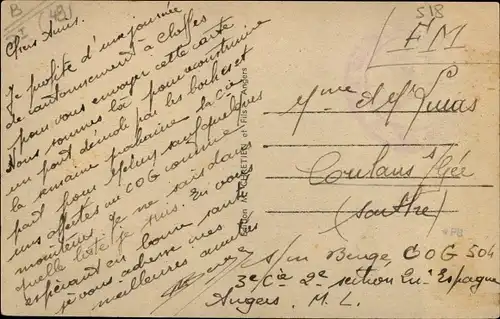 B
(49)
518
FM
Chers Amis.
Je profite d'une journée
de cantonnement à Cloffes
pour vous envoyer cette carte
Nous sommes là pour reconstruire
un pont démoli par les boches et
la semaine prochaine la Cie
part pour sauf quelques
uns affectés au COG comme
moniteurs. Je ne sais dans
quelle liste je suis. En vous
espérant en bonne santé
je vous adresse mes
meilleures amitiés
Edition A. CHRETIEN et Fils, Angers
Mme et Mr Lucas
Coulans s/Gée
(Sarthe)
PB
s/m COG 504
3e Cie 2e section En. Espagne
Angers. M. L.